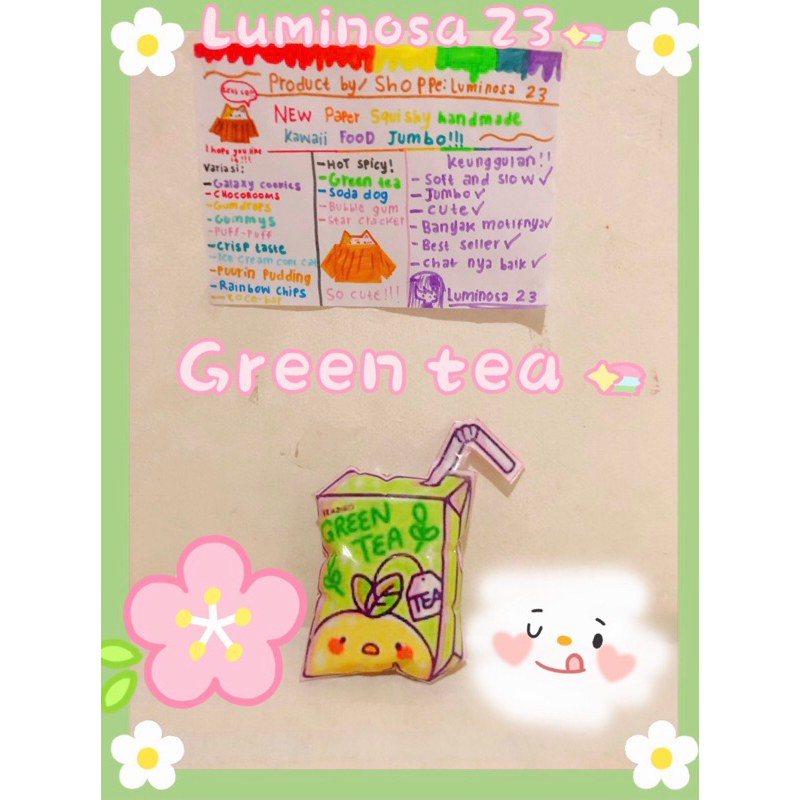 Luminosa 23
Product by/ Shoppe: Luminosa 23
NEW Paper Squishy handmade
Kawaii FOOD Jumbo!!!
I hope you like
it!!!
Variasi:
- Galaxy cookies
- CHOCOROOMS
- Gumdrops
- Gummys
- PUFF-PUFF
- Crisp taste
- Ice cream cone cat
- PUURIN PUDDING
- Rainbow chips
- COCO-bar
- HOT SPICY!
- Green tea
- Soda dog
- Bubble gum
- Star cracker
So cute!!!
keunggulan!!
- Soft and slow ✓
- Jumbo ✓
- Cute ✓
- Banyak motifnya ✓
- Best seller ✓
- Chat nya baik ✓
Luminosa 23
Green tea
GREEN
TEA
TEA